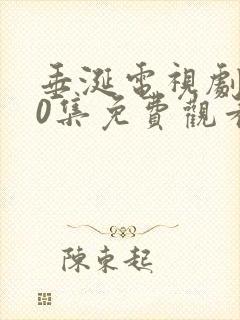 垂涎電視劇
0集免費觀看
陳東起